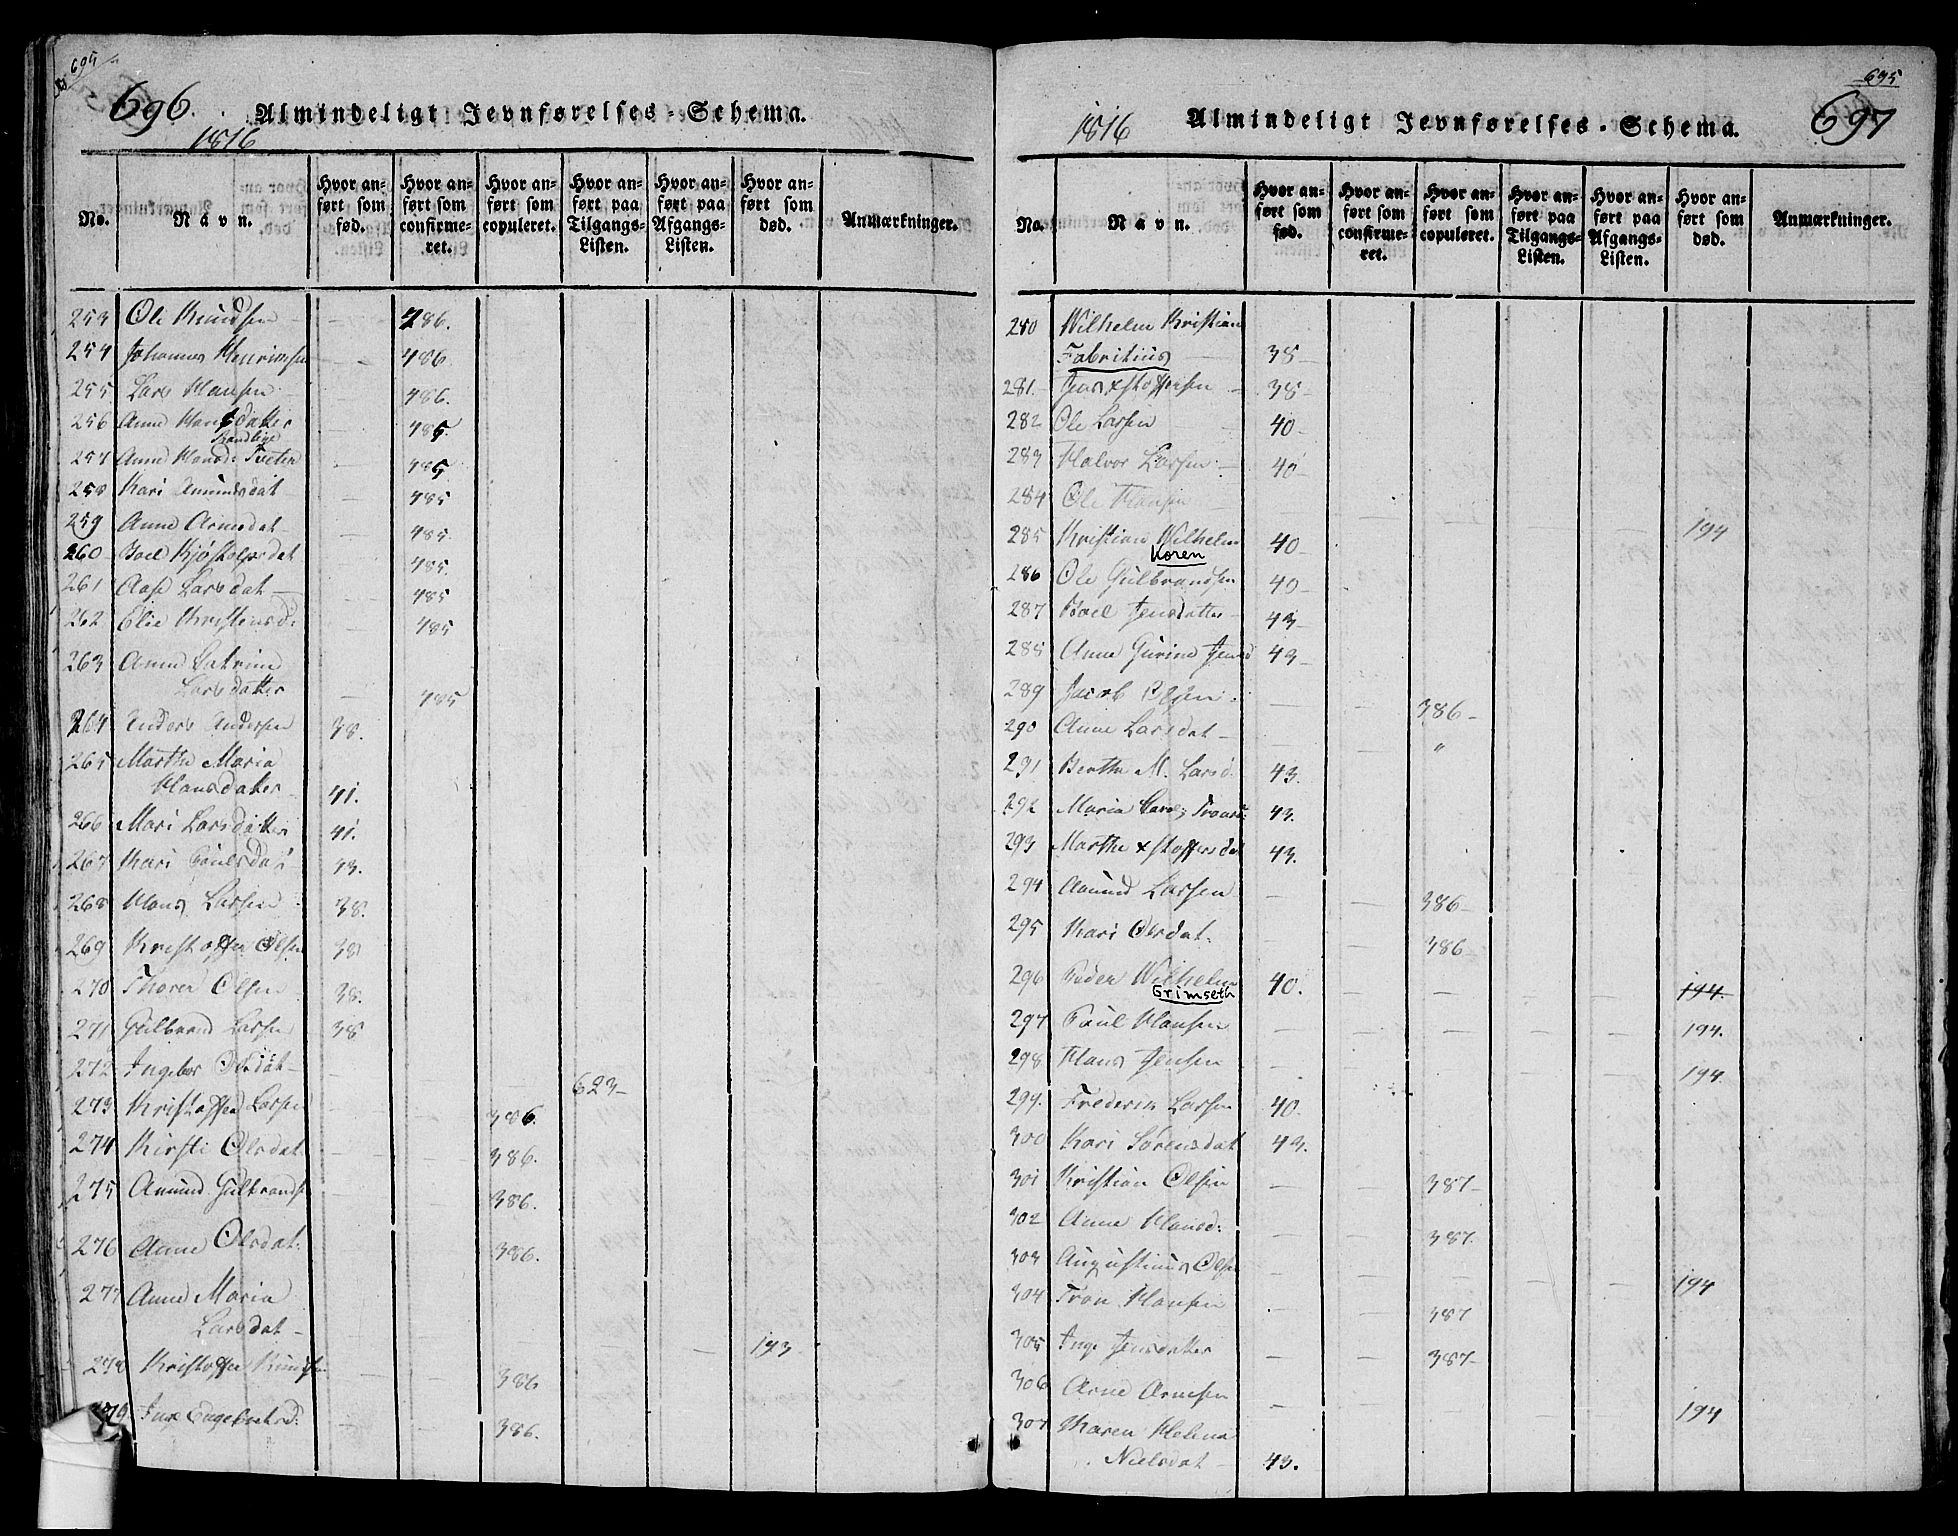 694
696.
Almindeligt Jevnførelses-Schema.
1816
No.
Navn.
Hvor anført som fød.
Hvor anført som confirmeret.
Hvor anført som copuleret.
Hvor anført paa Tilgangs-Listen.
Hvor anført paa Afgangs-Listen.
Hvor anført som død.
Anmærkninger.
253 Ole Knudsen 486.
254 Johannes 486
255 Lars Hansen 486.
256 Anne Hansdatter 485.
257 Anne Hansd: Tveten 485
258 Kari Amundsdat 485
259 Anne Arnesdat 485.
260 Boel dat 485.
261 Aase Larsdat 485
262 Elie Kristensd: 485
263 Anne Catrine
Larsdatter 485
264 Anders Andersen 38.
265 Marthe Maria
Hansdatter 41.
266 Mari Larsdatter 41.
267 Kari Poulsdat 43.
268 Hans Larsen 38.
269 Kristoffer Olsen 38
270 Thorer Olsen 38.
271 Gulbrand Larsen 38
272 Ingebor Olsdat 623
273 Kristoffer Larsen 386.
274 Kirsti Olsdat 386.
275 Amund Gulbrands 386.
276 Anne Olsdat: 386.
277 Anne Maria
Larsdat 193
278 Kristoffer Knudsen 386
279 Inge Engebretsd: 386.
695
697
1816
Almindeligt Jevnførelses-Schema.
No.
Navn.
Hvor anført som fød.
Hvor anført som confirmeret.
Hvor anført som copuleret.
Hvor anført paa Tilgangs-Listen.
Hvor anført paa Afgangs-Listen.
Hvor anført som død.
Anmærkninger.
280 Wilhelm Kristian
Fabritius 38
281. Jens xstoffersen 38
282 Ole Larsen 40
283 Halvor Larsen 40
284 Ole Hansen 194
285 Kristian Wilhelm 40
Koren
286 Ole Gulbrandsen 40
287 Boel Jensdatter 43
288 Anne Gurine Jensd 43
289 Jacob Olsen 386
290 Anne Larsdat "
291 Berthe M. Larsd. 43.
292 Maria 43.
293 Marthe xstoffersdat 43.
294 Amund Larsen 386
295 Kari Olsdat. 386
296 Peder Wilhelm 40. 194.
Grimseth
297 Poul Hansen 194.
298 Hans Jensen 194
299. Frederik Larsen 40
300 Kari Sørensdat 43.
301 Kristian Olsen 387
302 Anne Hansd: 387.
303 Augustinus Olsen 194
304 Tron Hansen 387
305 Inge Jensdatter 387
306 Arne Arnesen 194
307 Maren Helena
Nielsdat 43.